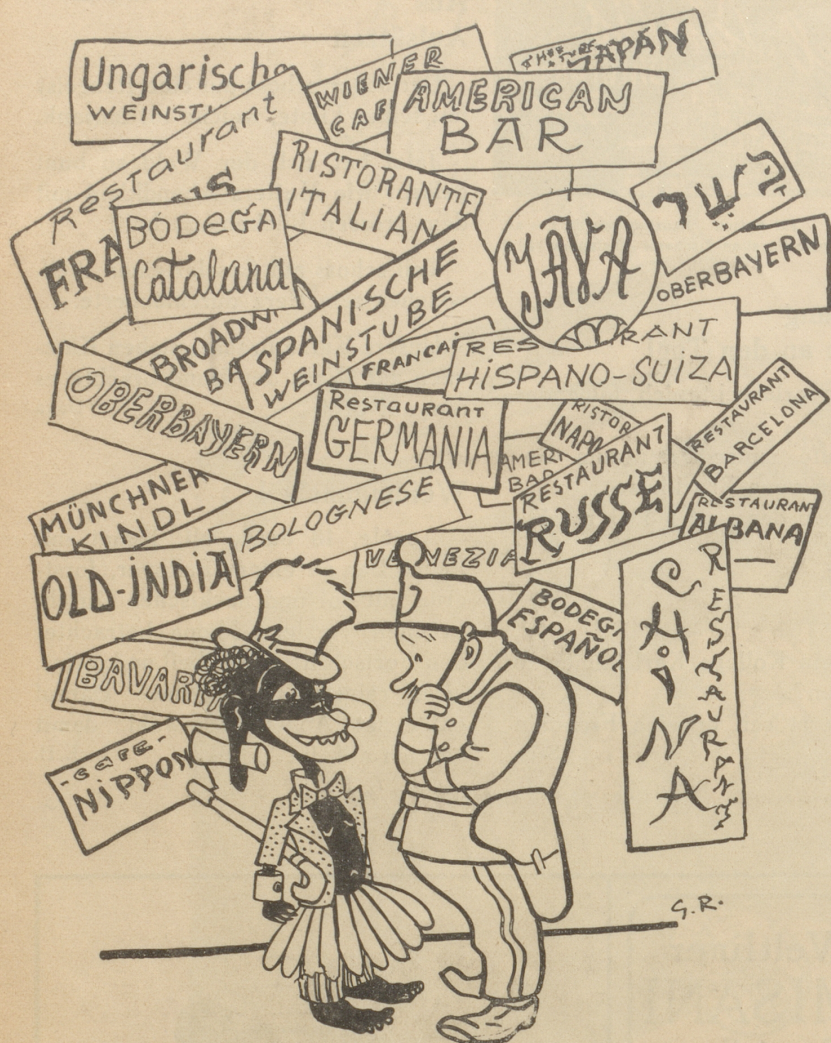 Ungarische
WEINST
WIENER
CAF
JAPAN
AMERICAN
BAR
Restaurant
FRA
RISTORANTE
ITALIAN
BODEGA
Catalana
JAVA
כָּשֵׁר
OBERBAYERN
BROADW
BA
SPANISCHE
WEINSTUBE
FRANCAI
RES RANT
HISPANO-SUIZA
OBERBAYERN
Restaurant
GERMANIA
RISTOR
NAPO
AMERI
BAR
RESTAURANT
BARCELONA
RESTAURANT
RUSSE
MÜNCHNER
KINDL
BOLOGNESE
RESTAURAN
ALBANA
OLD-INDIA
VENEZIA
BODEGA
ESPAÑOL
CHINA
RESTAURANT
BAVARI
-CAFE-
NIPPON
G.R.